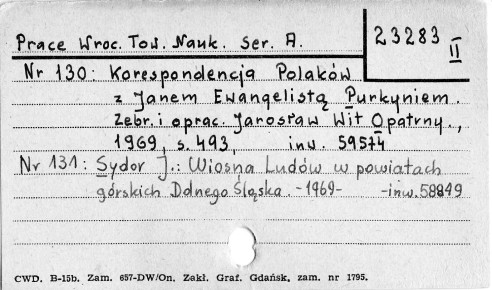 Prace Wroc. Tow. Nauk. Ser. A.
23283
II
Nr 130: Korespondencja Polaków
z Janem Ewangelistą Purkyniem.
Zebr. i oprac. Jarosław Wit Opatrny.,
1969, s. 493, inw. 59574
Nr 131: Sydor J.: Wiosna Ludów w powiatach
górskich Dolnego Śląska. -1969- -inw. 58849
CWD. B-15b. Zam. 657-DW/On. Zakł. Graf. Gdańsk, zam. nr 1795.